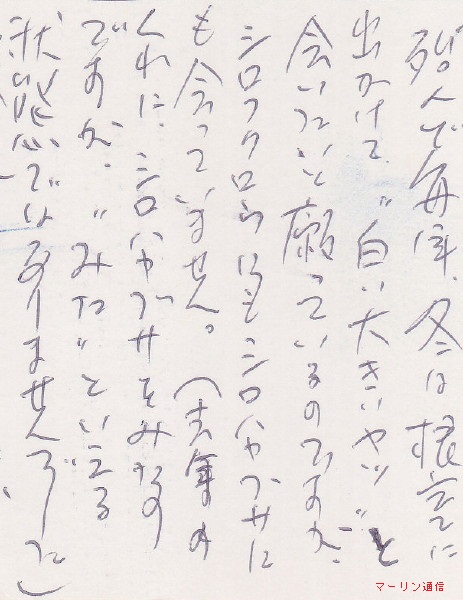 んで毎年、冬は根室に
出かけて、"白い大きいヤツ"と
会いたいと願っているのですが、
シロフクロウにもシロハヤブサに
も会っていません。(去年の
くれに、シロハヤブサをみたの
ですが、"みた"といえる
状態ではありませんでした)
マーリン通信